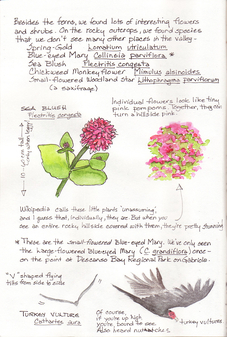 Besides the ferns, we found lots of interesting flowers
and shrubs. On the rocky outcrops, we found species
that we don't see many other places in the valley -
Spring-Gold Lomatium utriculatum
Blue-eyed Mary Collinsia parviflora *
Sea Blush Plectritis congesta
Chickweed Monkeyflower Mimulus alsinoides
Small-flowered Woodland Star Lithophragma parviflorum
(a saxifrage)
SEA BLUSH
Plectritis congesta
Individual flowers look like tiny
pink pompoms. Together, they can
turn a hillside pink.
Wikipedia calls these little plants "unassuming",
and I guess that, individually, they are. But when you
see an entire rocky hillside covered with them, they're pretty stunning!
* These are the small-flowered Blue-eyed Mary. We've only seen
the large-flowered Blue-eyed Mary (C. grandiflora) once -
on the point at Descanso Bay Regional Park on Gabriola.
"V" shaped flying
tilts from side to side
TURKEY VULTURE
Cathartes aura
Of course,
if you're up high,
you're bound to see
turkey vultures.
Also heard nuthatches